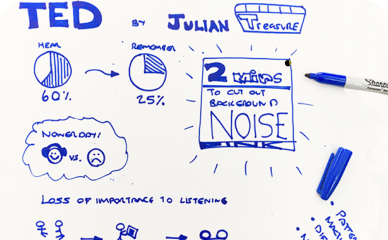 TED BY JULIAN Treasure
HEAR
60%
REMEMBER
25%
2 mins
TO CUT OUT
BACKGROUND
NOISE
NOWERDAY!
VS.
LOSS OF IMPORTANCE TO LISTENING
Sharpie